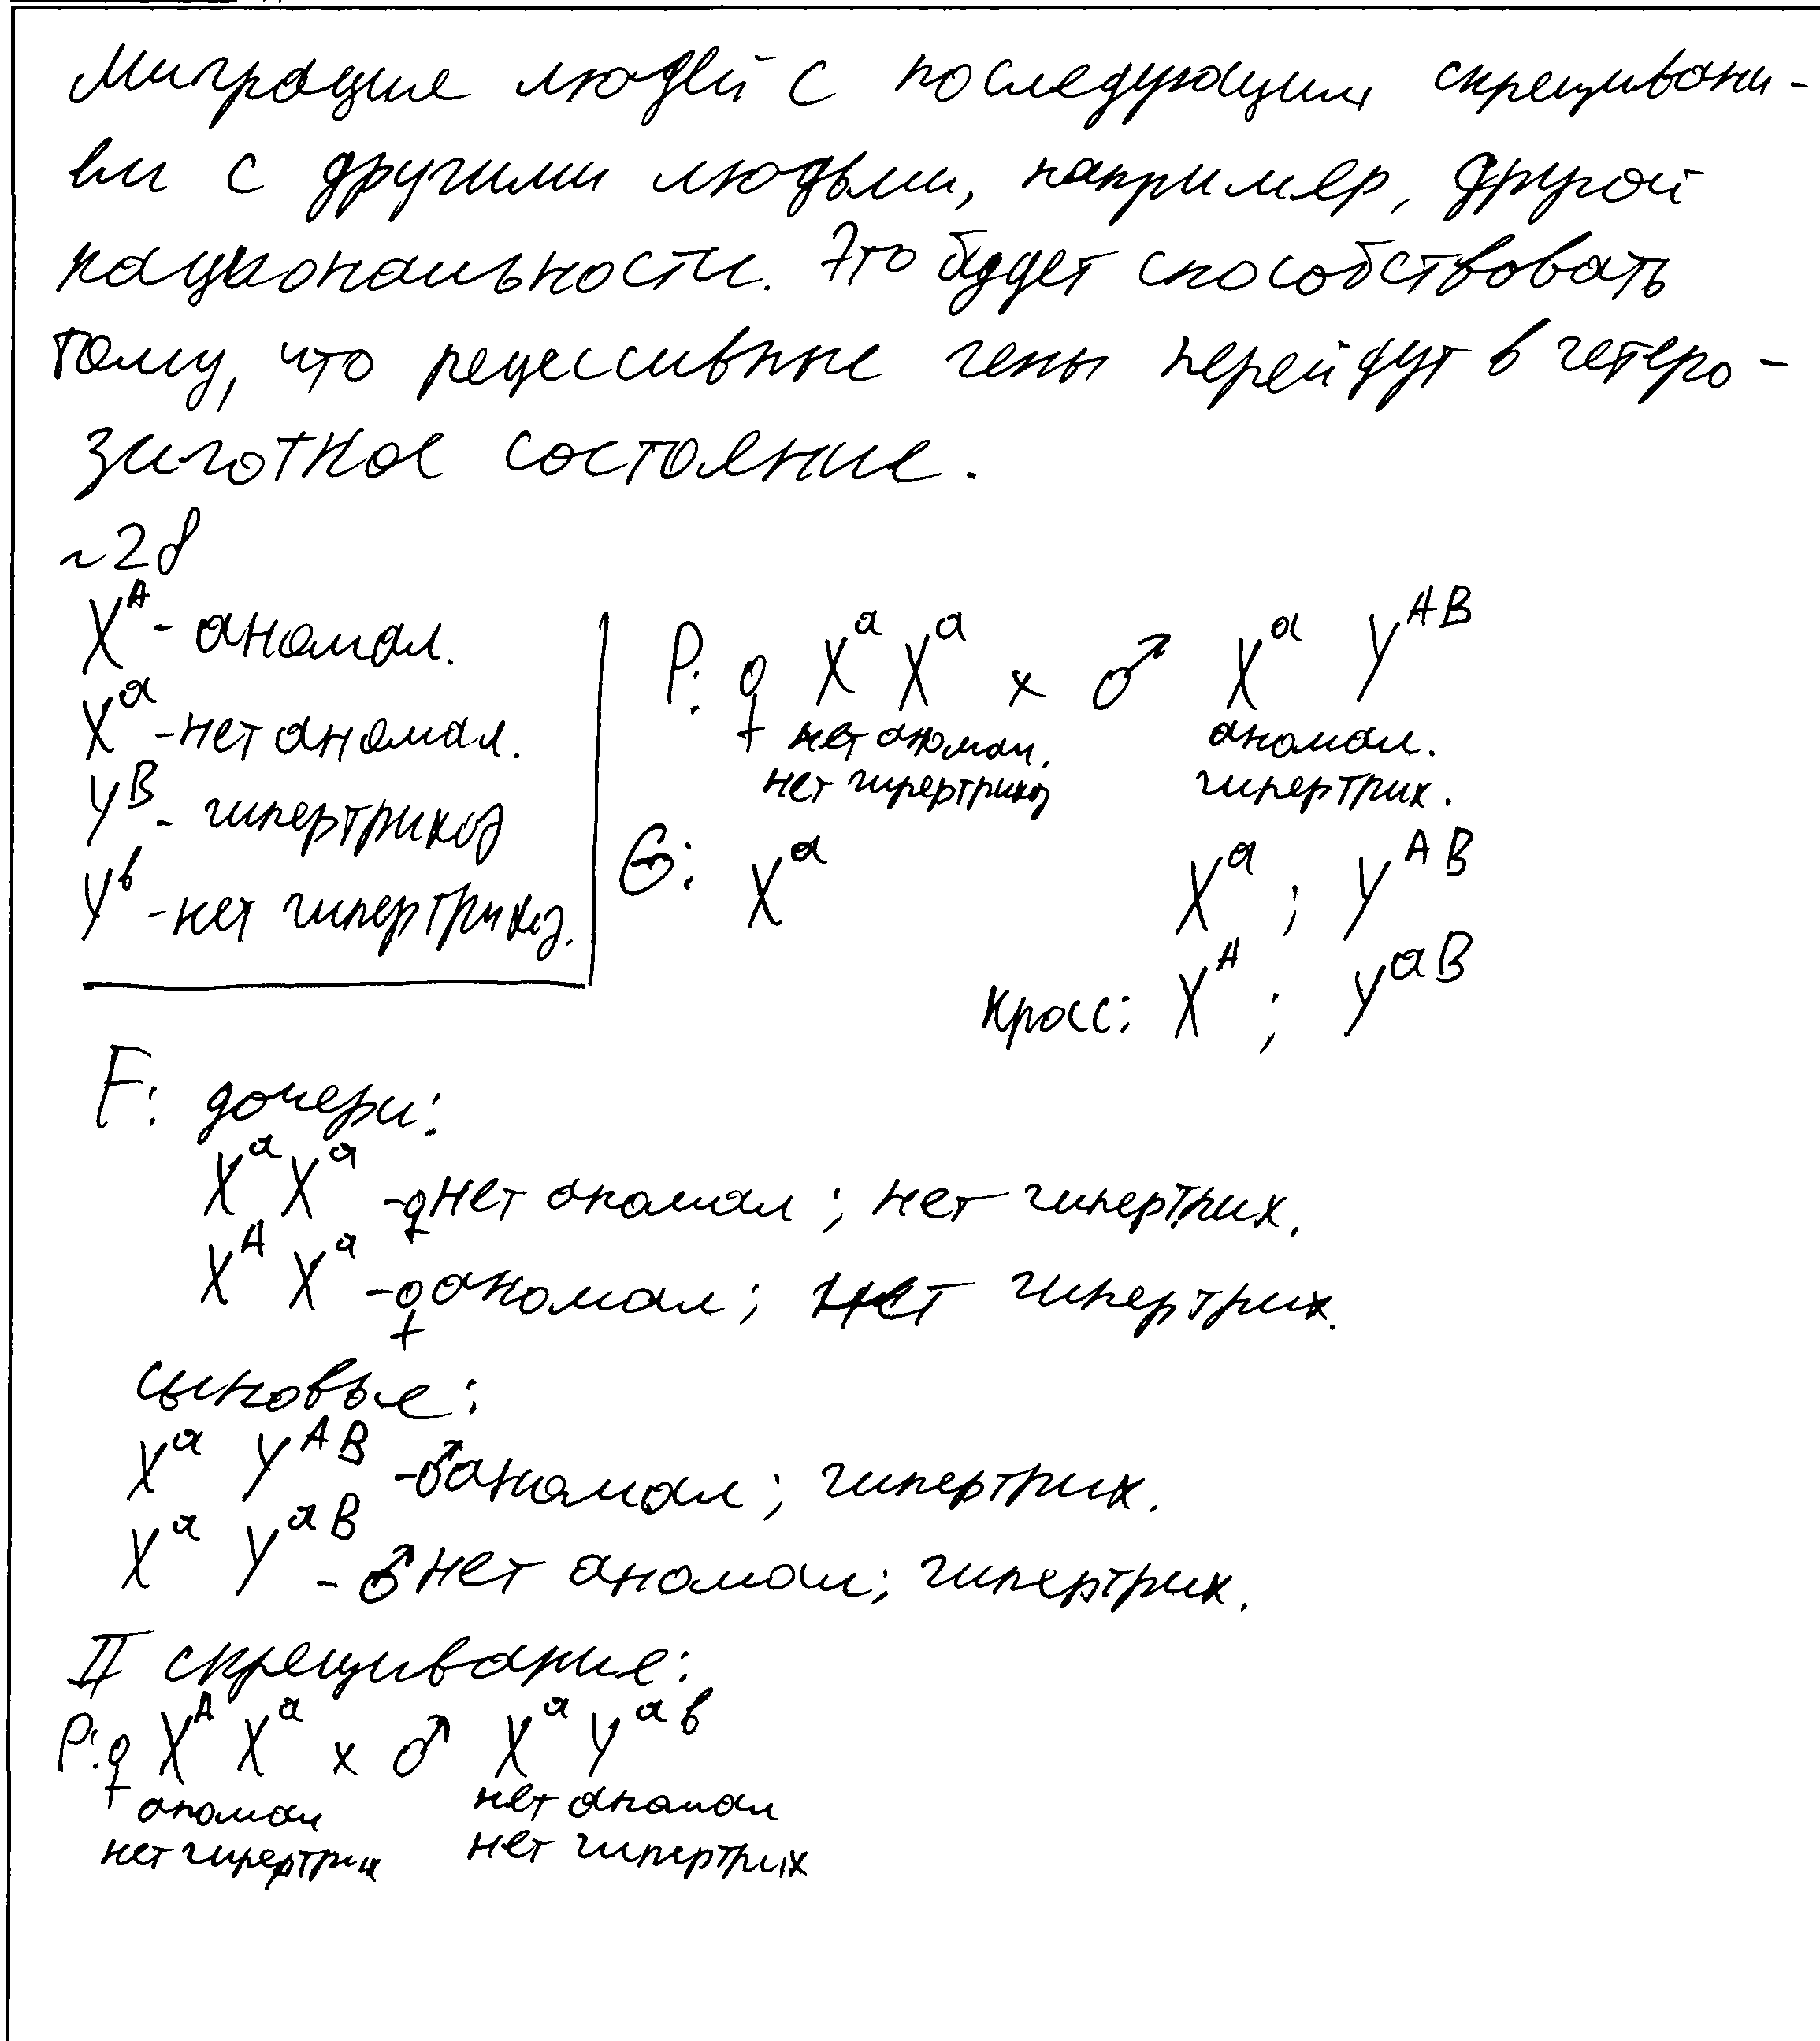 Миграция людей с последующим скрещивани-
ем с другими людьми, например, другой
национальности. Это будет способствовать
тому, что рецессивные гены перейдут в гетеро-
зиготное состояние.
~28
X^A - аномал.
X^a - нет аномал.
Y^B - гипертрихоз
Y^b - нет гипертрихоз.
P: ♀ X^a X^a × ♂ X^a Y^AB
нет аномал. аномал.
нет гипертрихоз гипертрих.
G: X^a X^a ; Y^AB
кросс: X^A ; Y^aB
F: дочери:
X^a X^a - ♀ нет аномал ; нет гипертрих.
X^A X^a - ♀ аномал ; нет гипертрих.
сыновье :
X^a Y^AB - ♂ аномал ; гипертрих.
X^a Y^aB - ♂ нет аномал ; гипертрих.
II скрещивание:
P: ♀ X^A X^a × ♂ X^a Y^ab
аномал нет аномал
нет гипертрих нет гипертрих